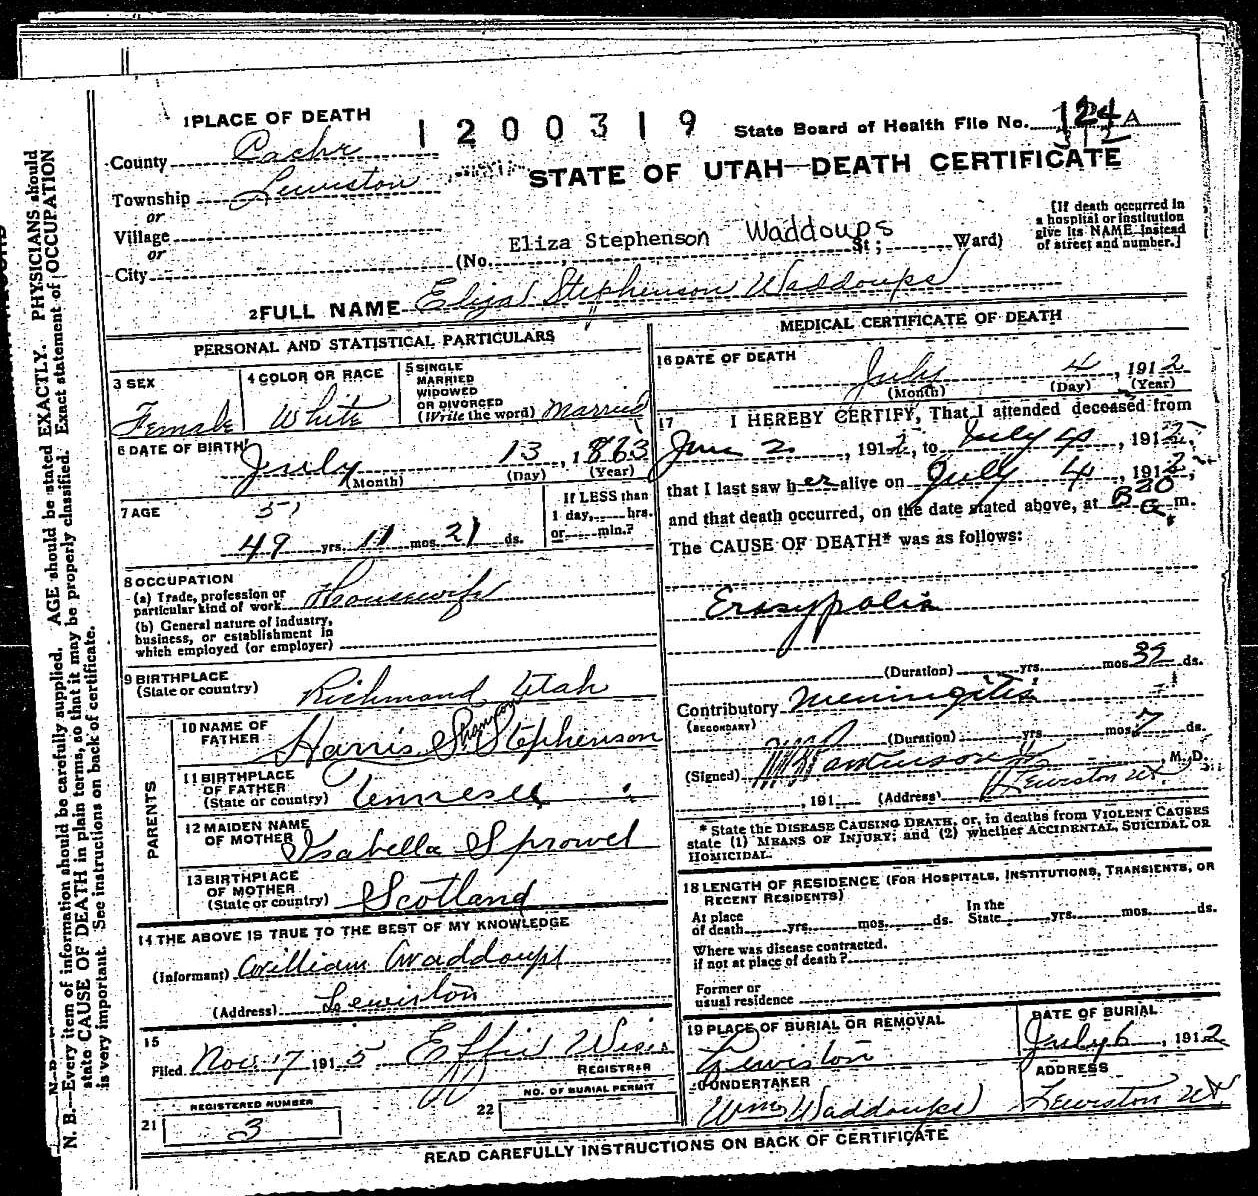 1 PLACE OF DEATH
1200319
State Board of Health File No. 124 A
County Cache
STATE OF UTAH—DEATH CERTIFICATE
Township Lewiston
or
Village
or
City
[If death occurred in
a hospital or institution
give its NAME instead
of street and number.]
Eliza Stephenson Waddoups
(No. St; Ward)
2 FULL NAME Eliza Stephenson Waddoups
PERSONAL AND STATISTICAL PARTICULARS
3 SEX
Female
4 COLOR OR RACE
White
5 SINGLE
MARRIED
WIDOWED
OR DIVORCED
(Write the word) Married
6 DATE OF BIRTH
July 13, 1863
(Month) (Day) (Year)
7 AGE
51
49 yrs. 11 mos. 21 ds.
If LESS than
1 day, hrs.
or min.?
8 OCCUPATION
(a) Trade, profession or
particular kind of work Housewife
(b) General nature of industry,
business, or establishment in
which employed (or employer)
9 BIRTHPLACE
(State or country) Richmond Utah
PARENTS
10 NAME OF
FATHER Harris Stephenson
11 BIRTHPLACE
OF FATHER
(State or country) Tennessee
12 MAIDEN NAME
OF MOTHER Isabella Sprowel
13 BIRTHPLACE
OF MOTHER
(State or country) Scotland
14 THE ABOVE IS TRUE TO THE BEST OF MY KNOWLEDGE
(Informant) William Waddoups
(Address) Lewiston
15
Filed Nov. 17 1915 Effie Wiser
REGISTRAR
REGISTERED NUMBER
21 3
NO. OF BURIAL PERMIT
22
MEDICAL CERTIFICATE OF DEATH
16 DATE OF DEATH
July 4, 1912
(Month) (Day) (Year)
17 I HEREBY CERTIFY, That I attended deceased from
June 2, 1912, to July 4, 1912,
that I last saw her alive on July 4, 1912,
and that death occurred, on the date stated above, at m.
The CAUSE OF DEATH* was as follows:
Erasypolis
(Duration) yrs. mos. 32 ds.
Contributory Meningitis
(SECONDARY)
(Duration) yrs. mos. 7 ds.
(Signed) Parkinson, M. D.
, 191 (Address) Lewiston Ut
* State the DISEASE CAUSING DEATH, or, in deaths from VIOLENT CAUSES
state (1) MEANS OF INJURY; and (2) whether ACCIDENTAL, SUICIDAL OR
HOMICIDAL.
18 LENGTH OF RESIDENCE (FOR HOSPITALS, INSTITUTIONS, TRANSIENTS, OR
RECENT RESIDENTS)
At place
of death yrs. mos. ds.
In the
State yrs. mos. ds.
Where was disease contracted.
if not at place of death?
Former or
usual residence
19 PLACE OF BURIAL OR REMOVAL
Lewiston
DATE OF BURIAL
July 6, 1912
UNDERTAKER
Wm Waddoups
ADDRESS
Lewiston Ut.
READ CAREFULLY INSTRUCTIONS ON BACK OF CERTIFICATE
N. B.—Every item of information should be carefully supplied. AGE should be stated EXACTLY. PHYSICIANS should
state CAUSE OF DEATH in plain terms, so that it may be properly classified. Exact statement of OCCUPATION
is very important. See instructions on back of certificate.